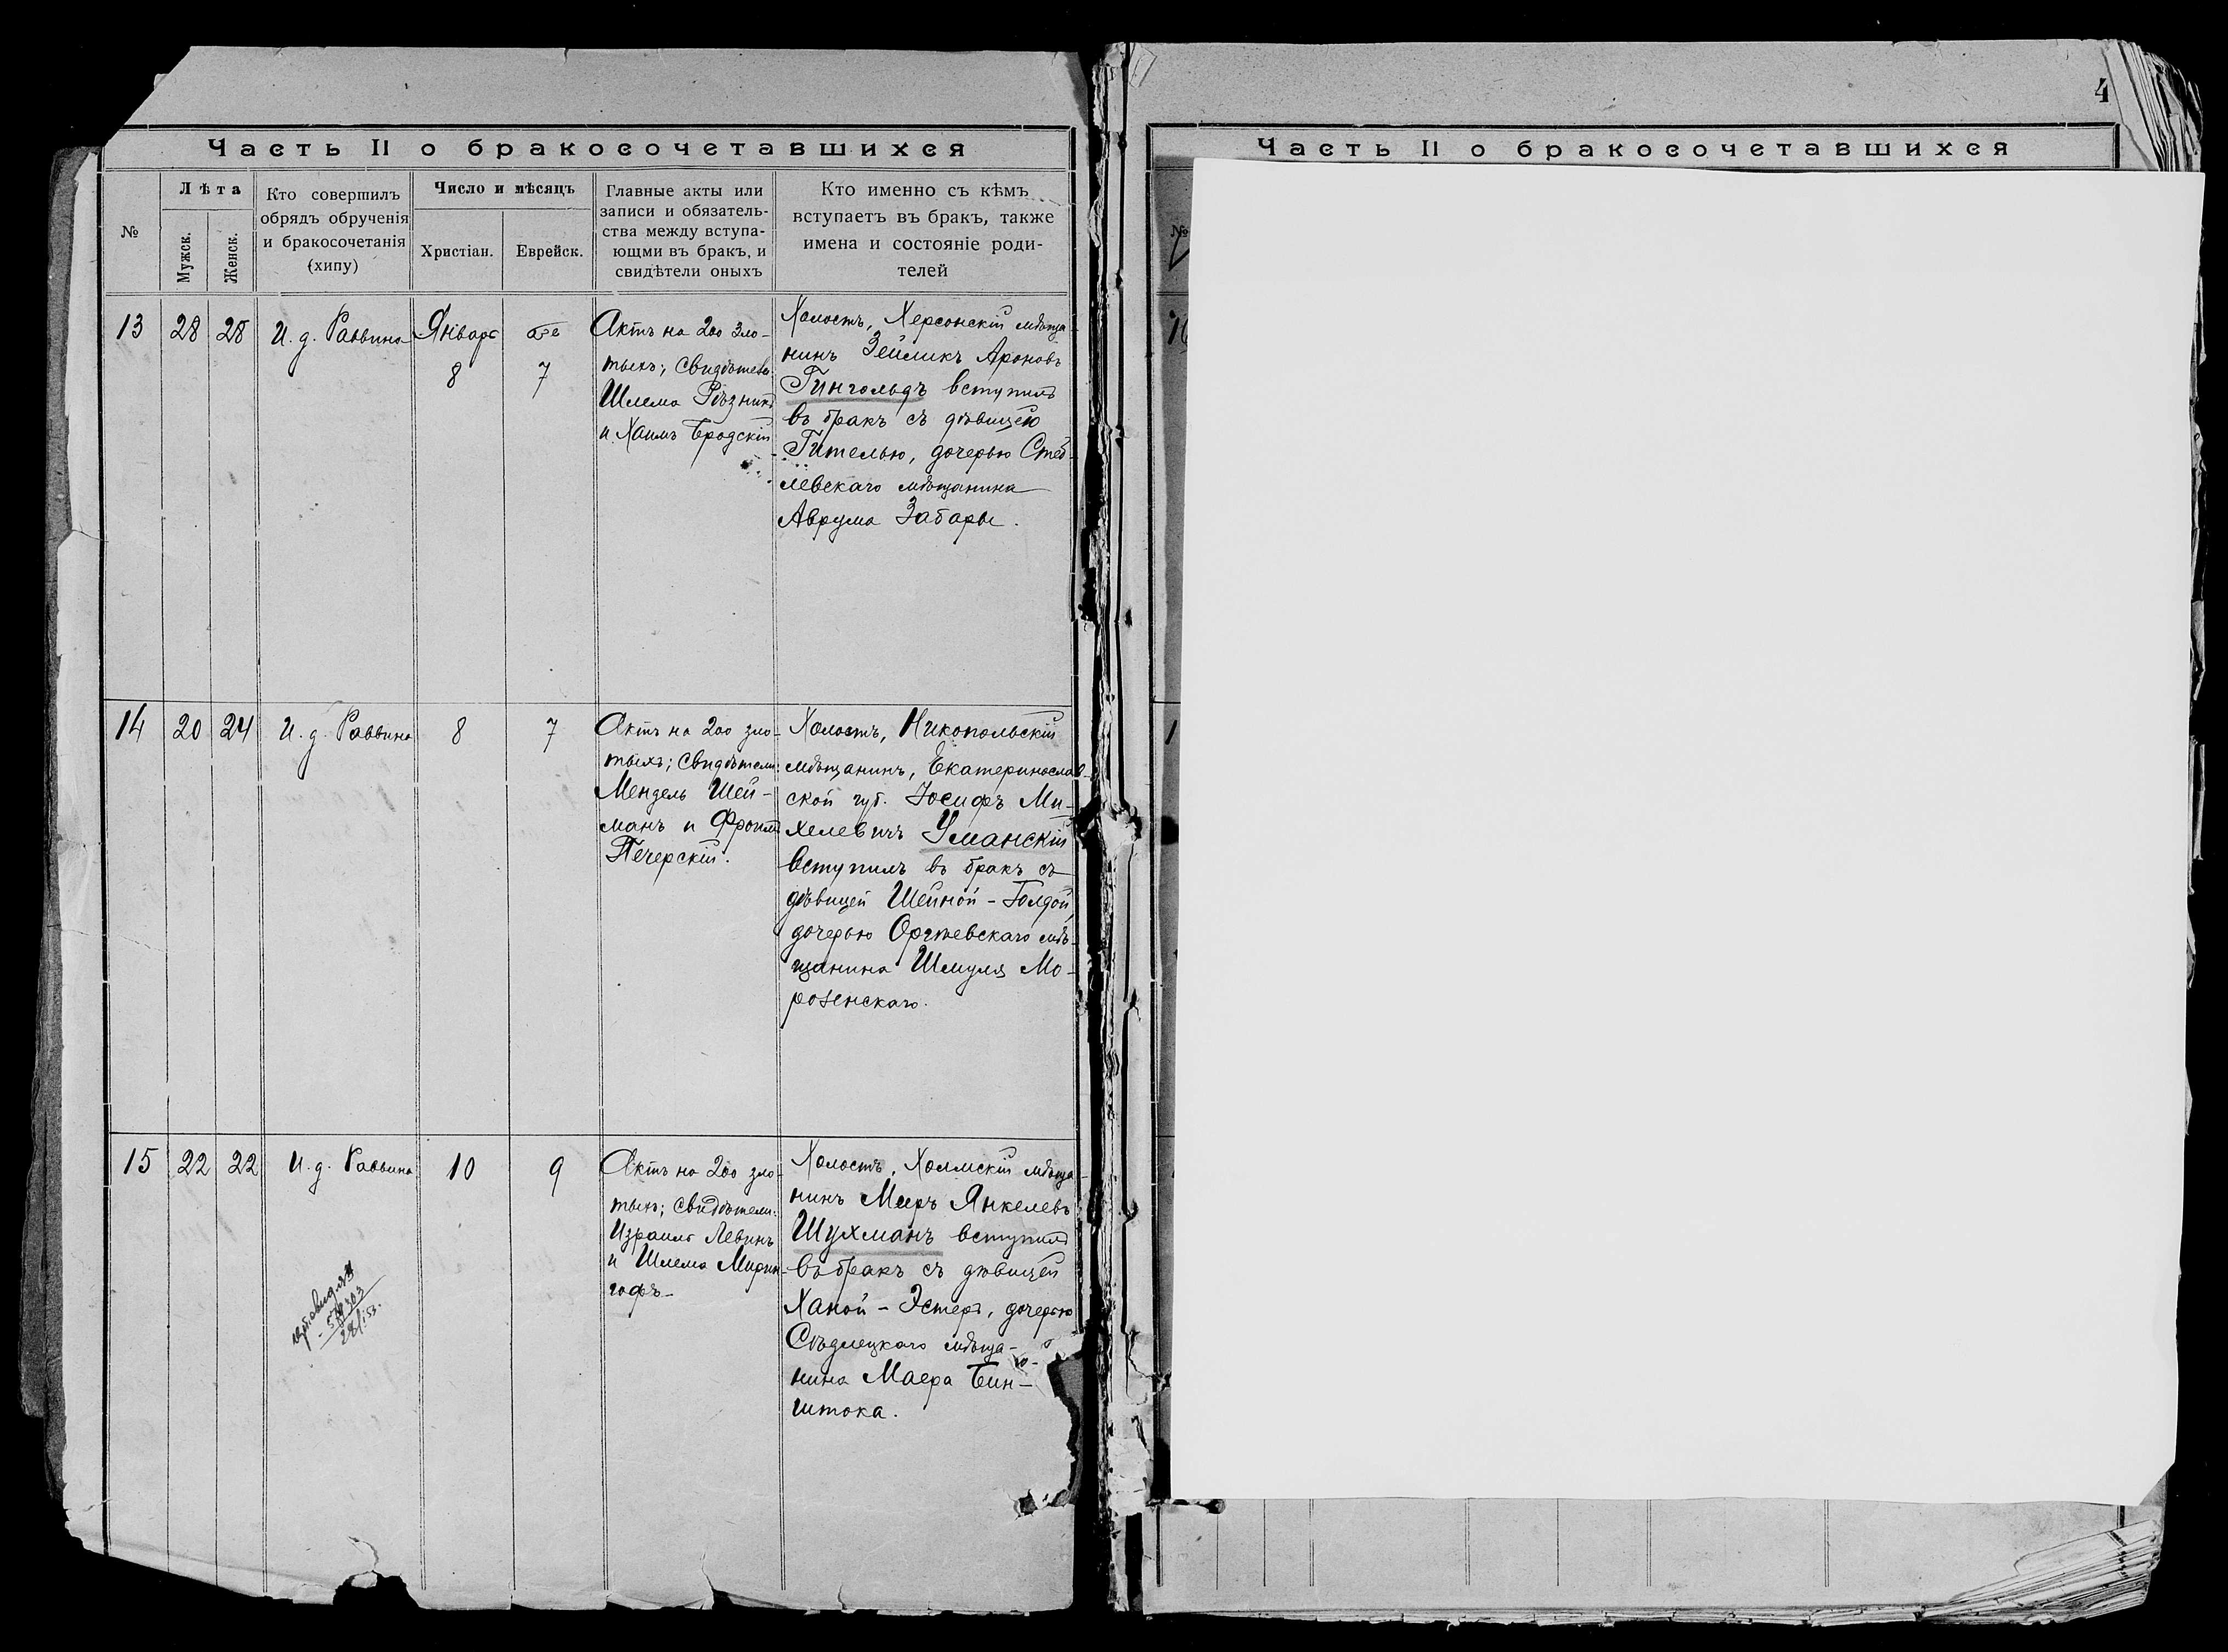 4
Часть II о бракосочетавшихся
Часть II о бракосочетавшихся
№
Лѣта
Мужск.
Женск.
Кто совершилъ
обрядъ обрученія
и бракосочетанія
(хипу)
Число и мѣсяцъ
Христіан.
Еврейск.
Главные акты или
записи и обязатель-
ства между вступа-
ющми въ бракъ, и
свидѣтели оныхъ
Кто именно съ кѣмъ
вступаетъ въ бракъ, также
имена и состояніе роди-
телей
№
13
28
28
И. д. Раввина
Январь
8
7
Актъ на 200 зло-
тыхъ; Свидѣтели
Шлема Рѣзникъ
и Хаимъ Бродскій
Холостъ, Херсонскій мѣща
нинъ Зейликъ Ароновъ
Гингольдъ вступилъ
въ бракъ съ дѣвицею
Гителью, дочерью Стеб-
левскаго мѣщанина
Аврума Забары.
14
20
24
И. д. Раввина
8
7
Актъ на 200 зло-
тыхъ; Свидѣтели:
Мендель Шей-
манъ и Фроимъ
Печерскій.
Холостъ, Никопольскій
мѣщанинъ, Екатеринослав-
ской губ. Іосифъ Ми-
хелевичъ Уманскій
вступилъ въ бракъ съ
дѣвицей Шейной-Голдой,
дочерью Оргѣевскаго мѣ-
щанина Шмуля Мо-
розенскаго.
15
22
22
И. д. Раввина
10
9
Актъ на 200 зло-
тыхъ; Свидѣтели:
Израиль Левинъ
и Шлема Мирин-
гофъ
Холостъ, Холмскій мѣща-
нинъ Меиръ Янкелевъ
Шухманъ вступилъ
въ бракъ съ дѣвицей
Ханой-Эстеръ, дочерью
Сѣдлецкаго мѣща-
нина Маера Бин-
штока.